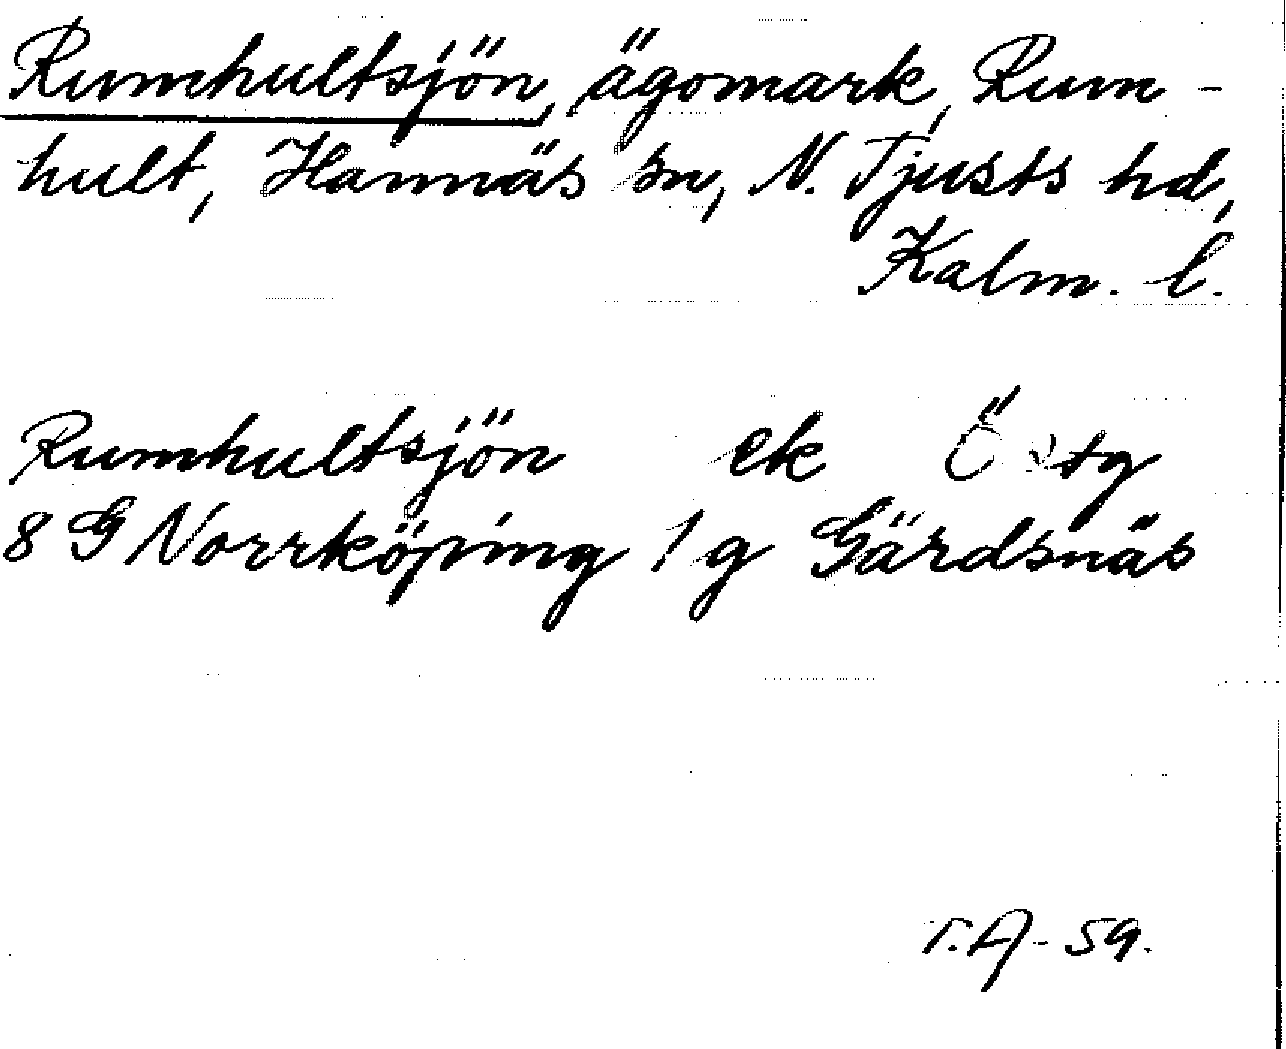 Rumhultsjön, ägomark, Rum-
hult, Hannäs sn, N. Tjusts hd,
Kalm. l.
Rumhultsjön ek Östg
8 G Norrköping 1 g Gärdsnäs
T.A-59.